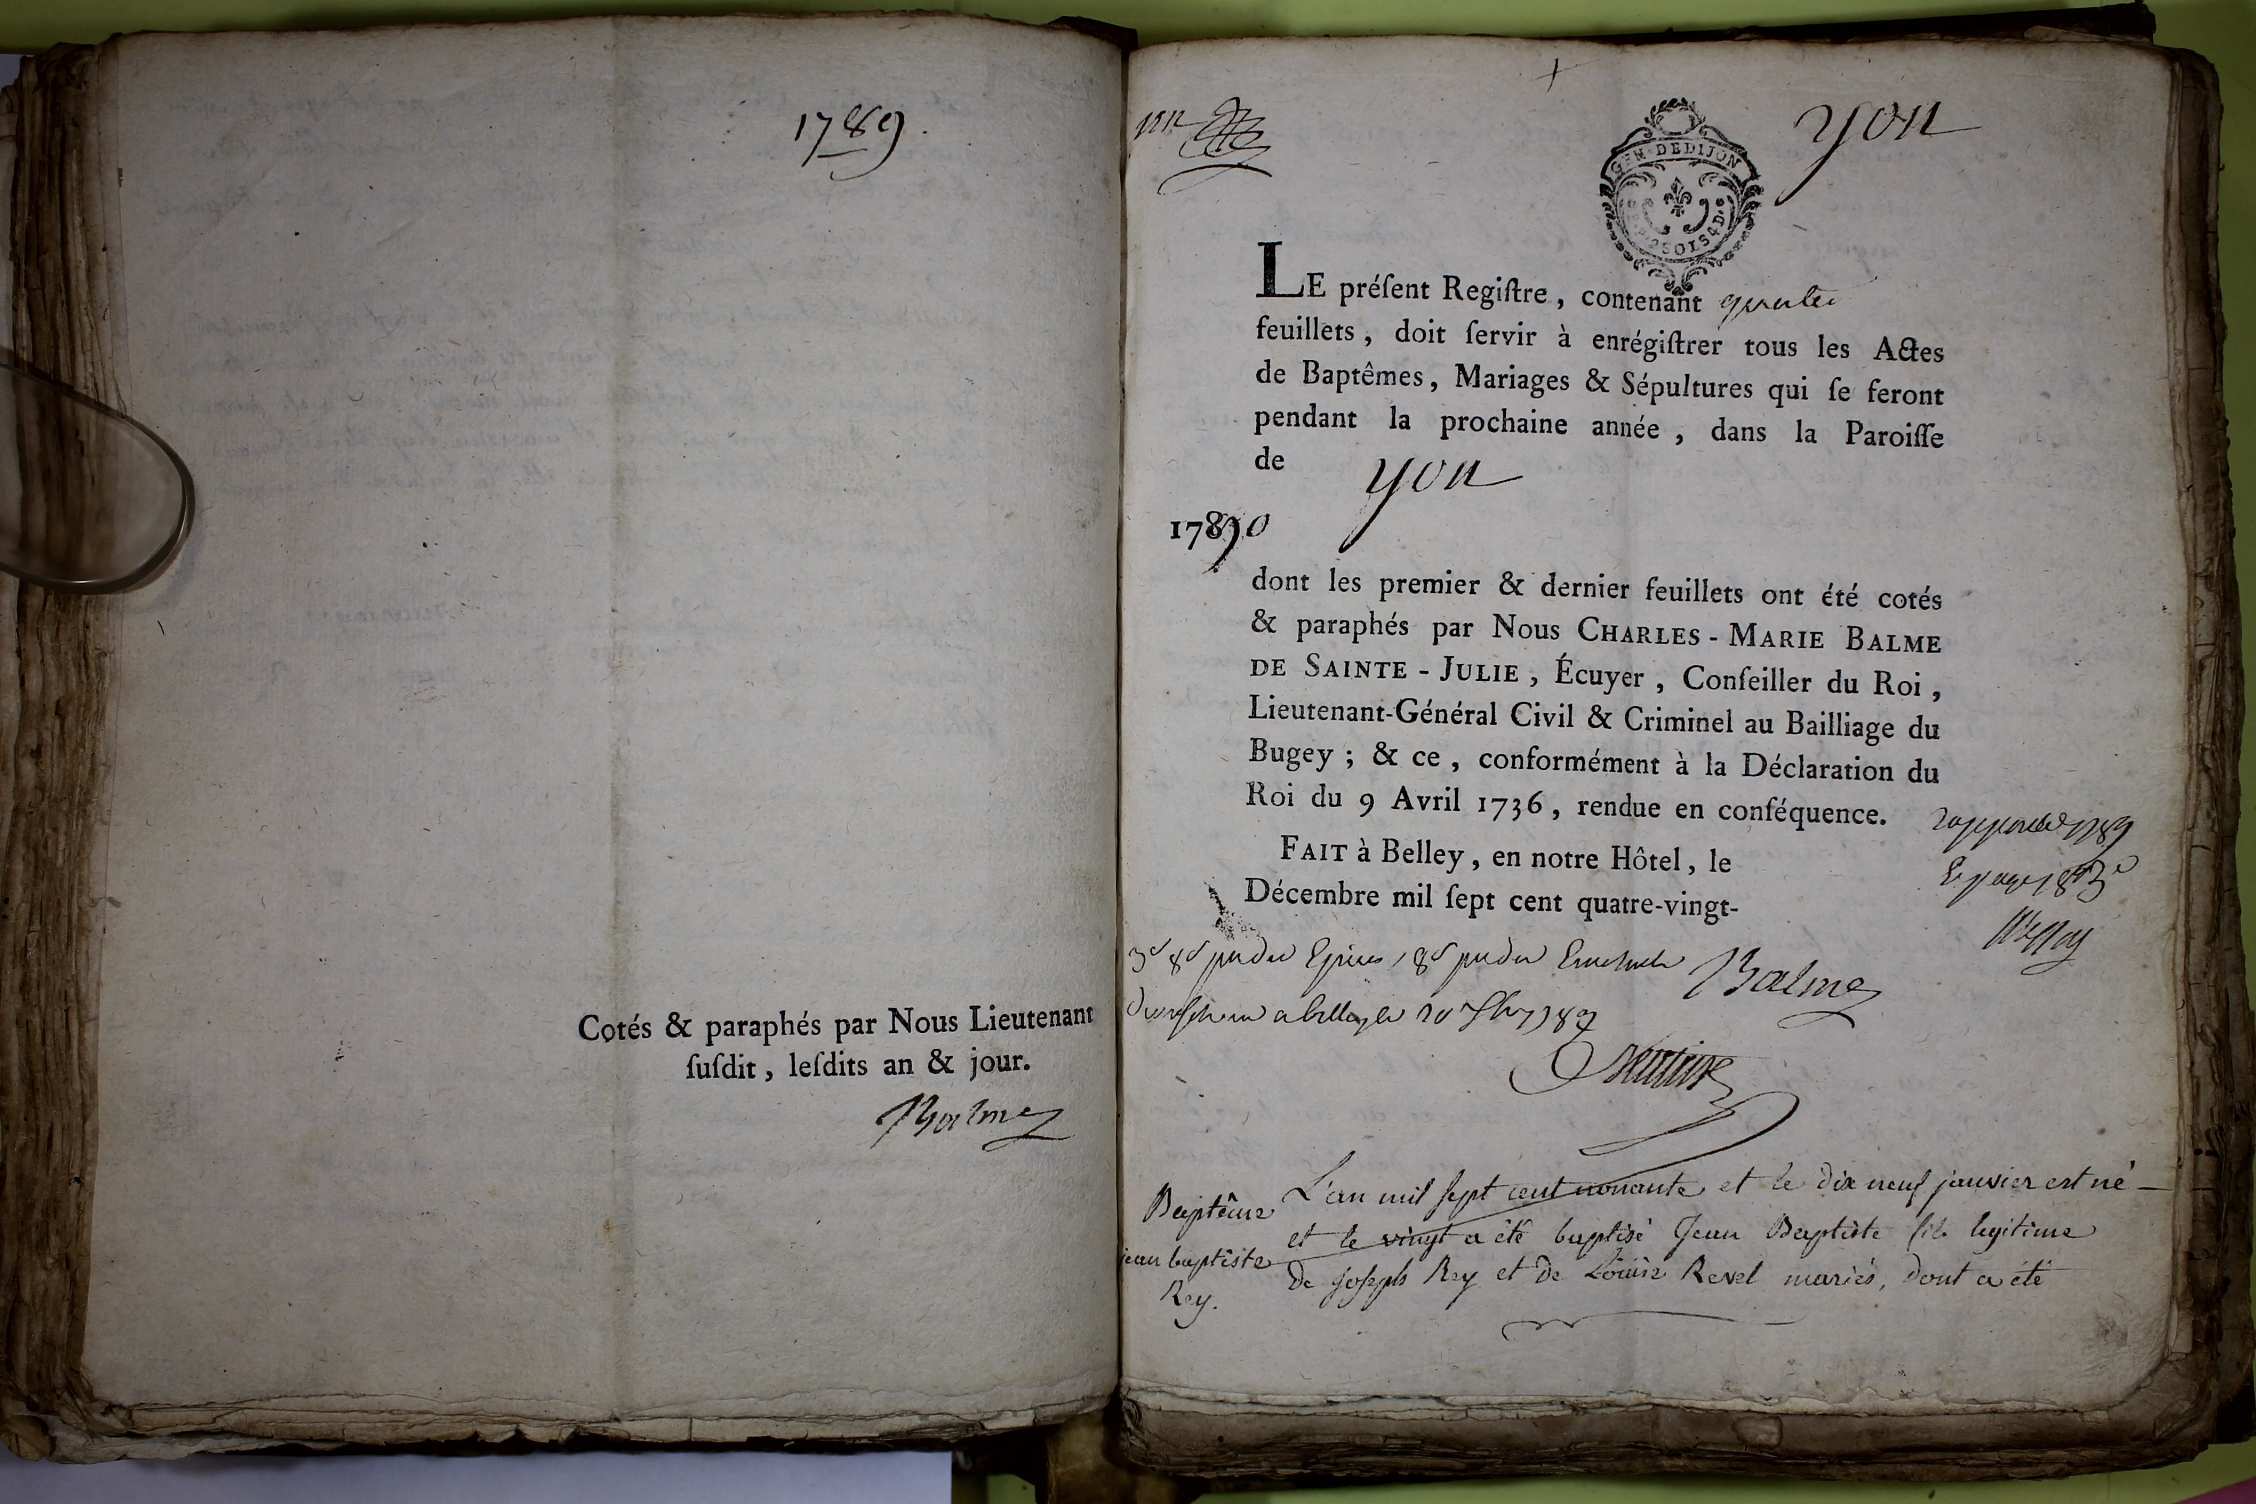 1789.
Cotés & paraphés par Nous Lieutenant
ſuſdit, leſdits an & jour.
Balme
yon
GEN. DE DIJON
2 SOLS 4 D.
LE préſent Regiſtre, contenant quatre
feuillets, doit ſervir à enrégiſtrer tous les Actes
de Baptêmes, Mariages & Sépultures qui ſe feront
pendant la prochaine année, dans la Paroiſſe
de yon
1790
dont les premier & dernier feuillets ont été cotés
& paraphés par Nous CHARLES-MARIE BALME
DE SAINTE-JULIE, Écuyer, Conſeiller du Roi,
Lieutenant-Général Civil & Criminel au Bailliage du
Bugey; & ce, conformément à la Déclaration du
Roi du 9 Avril 1736, rendue en conſéquence.
FAIT à Belley, en notre Hôtel, le
Décembre mil ſept cent quatre-vingt-
Balme
Baptême
jean baptiste
Rey.
L'an mil sept cent nonante et le dix neuf janvier est né
et le vingt a été baptisé Jean Baptiste fils legitime
de joseph Rey et de Louise Revel mariés, dont a été